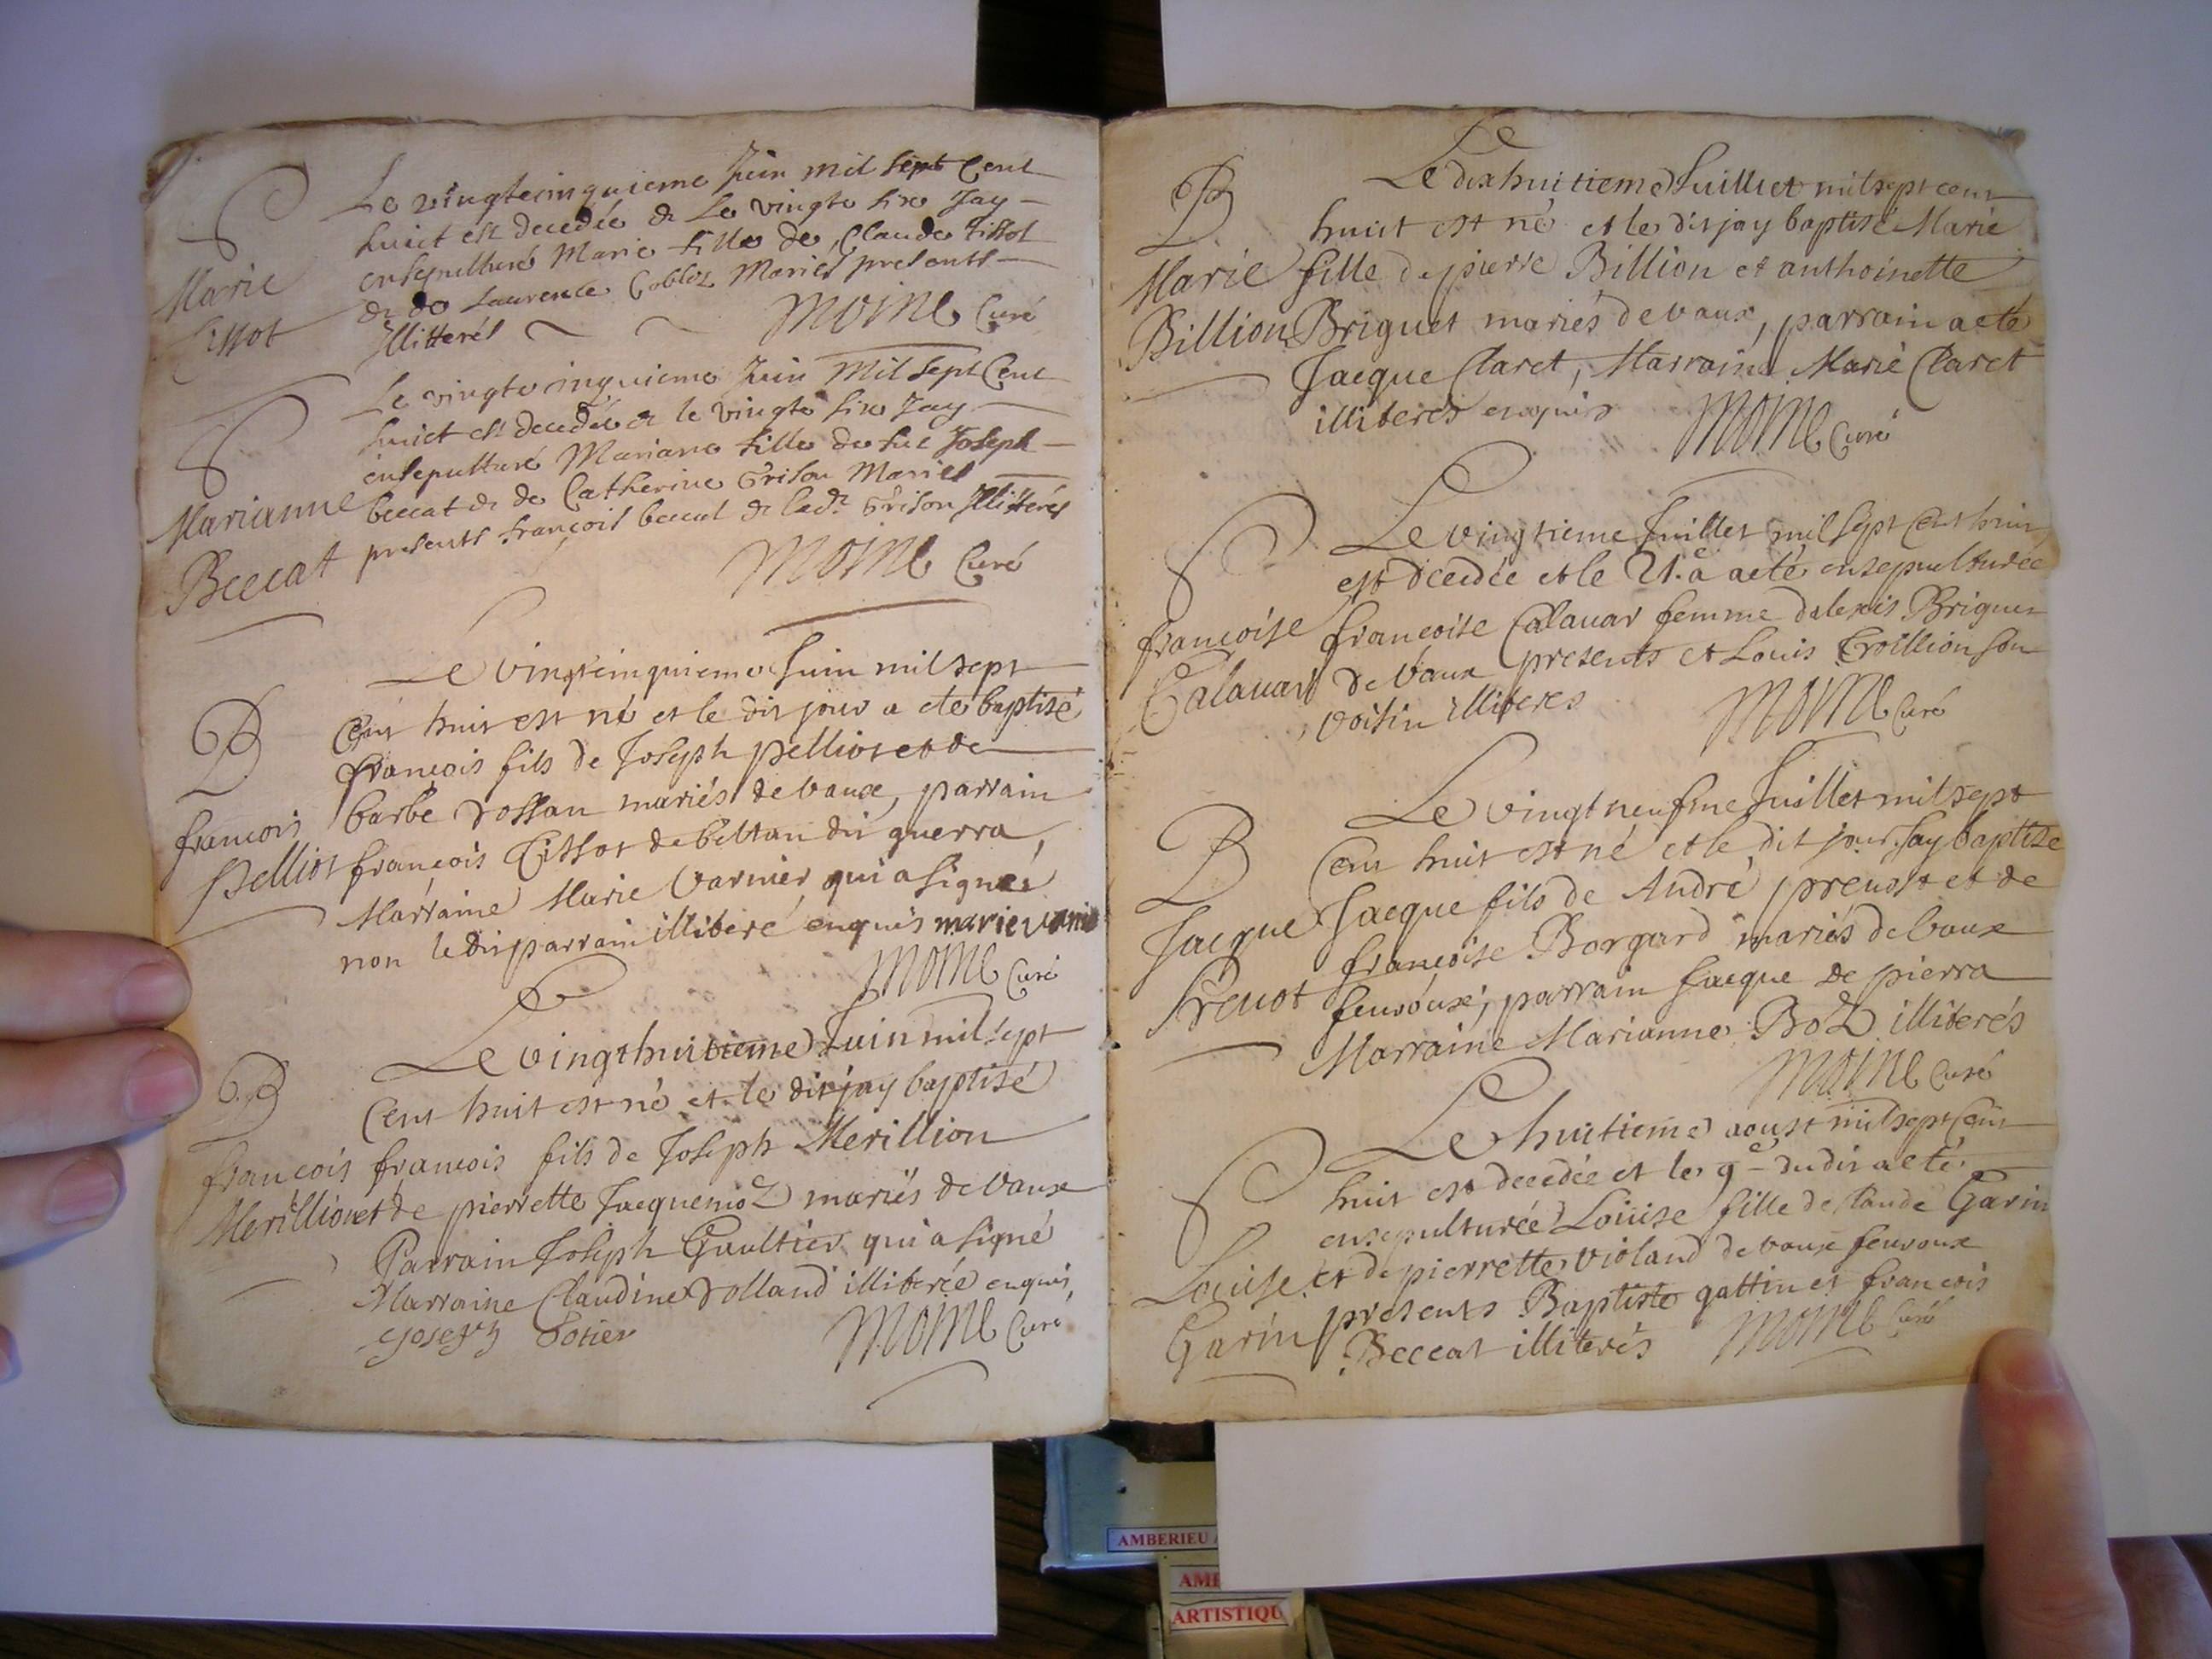 S
Marie
Tissot
Le vingtcinquieme Juin mil sept Cent
huict est decedée & Le vingte sixe Jay
ensepulturé Marie fille de Claude tissot
& de Laurence Mariés presents
Illitterés Moine Curé
S
Marianne
Beccat
Le vingtecinquieme Juin Mil sept Cent
huict est decedée & le vingte sixe Jay
ensepulturé Mariane fille de feu Joseph
beccat & de Catherine Grison Mariés
presents françois beccat & lad.e Grison Illiterés
Moine Curé
B
françois
Pelliot
Le vingtcinquieme Juin mil sept
Cent huit est né et le dit jour a eté baptisé
françois fils de Joseph pelliot et de
barbe mariés de vaux, parrain
françois Tissot de bettan dit guerra,
Marraine Marie Varnier qui a signée
non le dit parrain illiteré enquis marie
Moine Curé
B
françois
Merillion
Le vingt huitieme Juin mil sept
Cent huit est né et le dit jay baptisé
françois fils de Joseph Merillion
et de pierrette Jacquemoz mariés de Vaux
Parrain Joseph Gaultier qui a signé
Marraine Claudine illiterée enquis,
Moine Curé
Le
B
Marie
Billion
Le dix huitieme Juilliet mil sept cent
huit est né et le dit jay baptisé Marie
fille de pierre Billion et anthoinette
Briguet mariés de vaux, parrain a eté
Jacque Claret, Marraine Marie Claret
illiterés enquis Moine Curé
S
françoise
Calavar
Le vingtieme Juillet mil sept Cent huit
est decedée et le 21.e a eté ensepulturée
francoise Calavar femme dalexis Briguet
de Vaux presents et Louis Troillion son
voisin illiteres Moine Curé
B
Jacque
Prevot
Le vingt neufme Juillet mil sept
Cent huit est né et le dit jour Jay baptize
Jacque fils de André prevost et de
françoise Borgard mariés de Vaux
fevroux, parrain Jacque de pierra
Marraine Marianne Boz illiterés
Moine Curé
S
Louise
Garin
Le huitieme aoust mil sept Cent
huit est decedée et le 9e du dit a eté
ensepulturée Louise fille de Claude Garin
et de pierrette violand de vaux fevroux
presents Baptiste gattin et francois
Beccat illiterés Moine Curé
AMBERIEU
ARTISTIQU